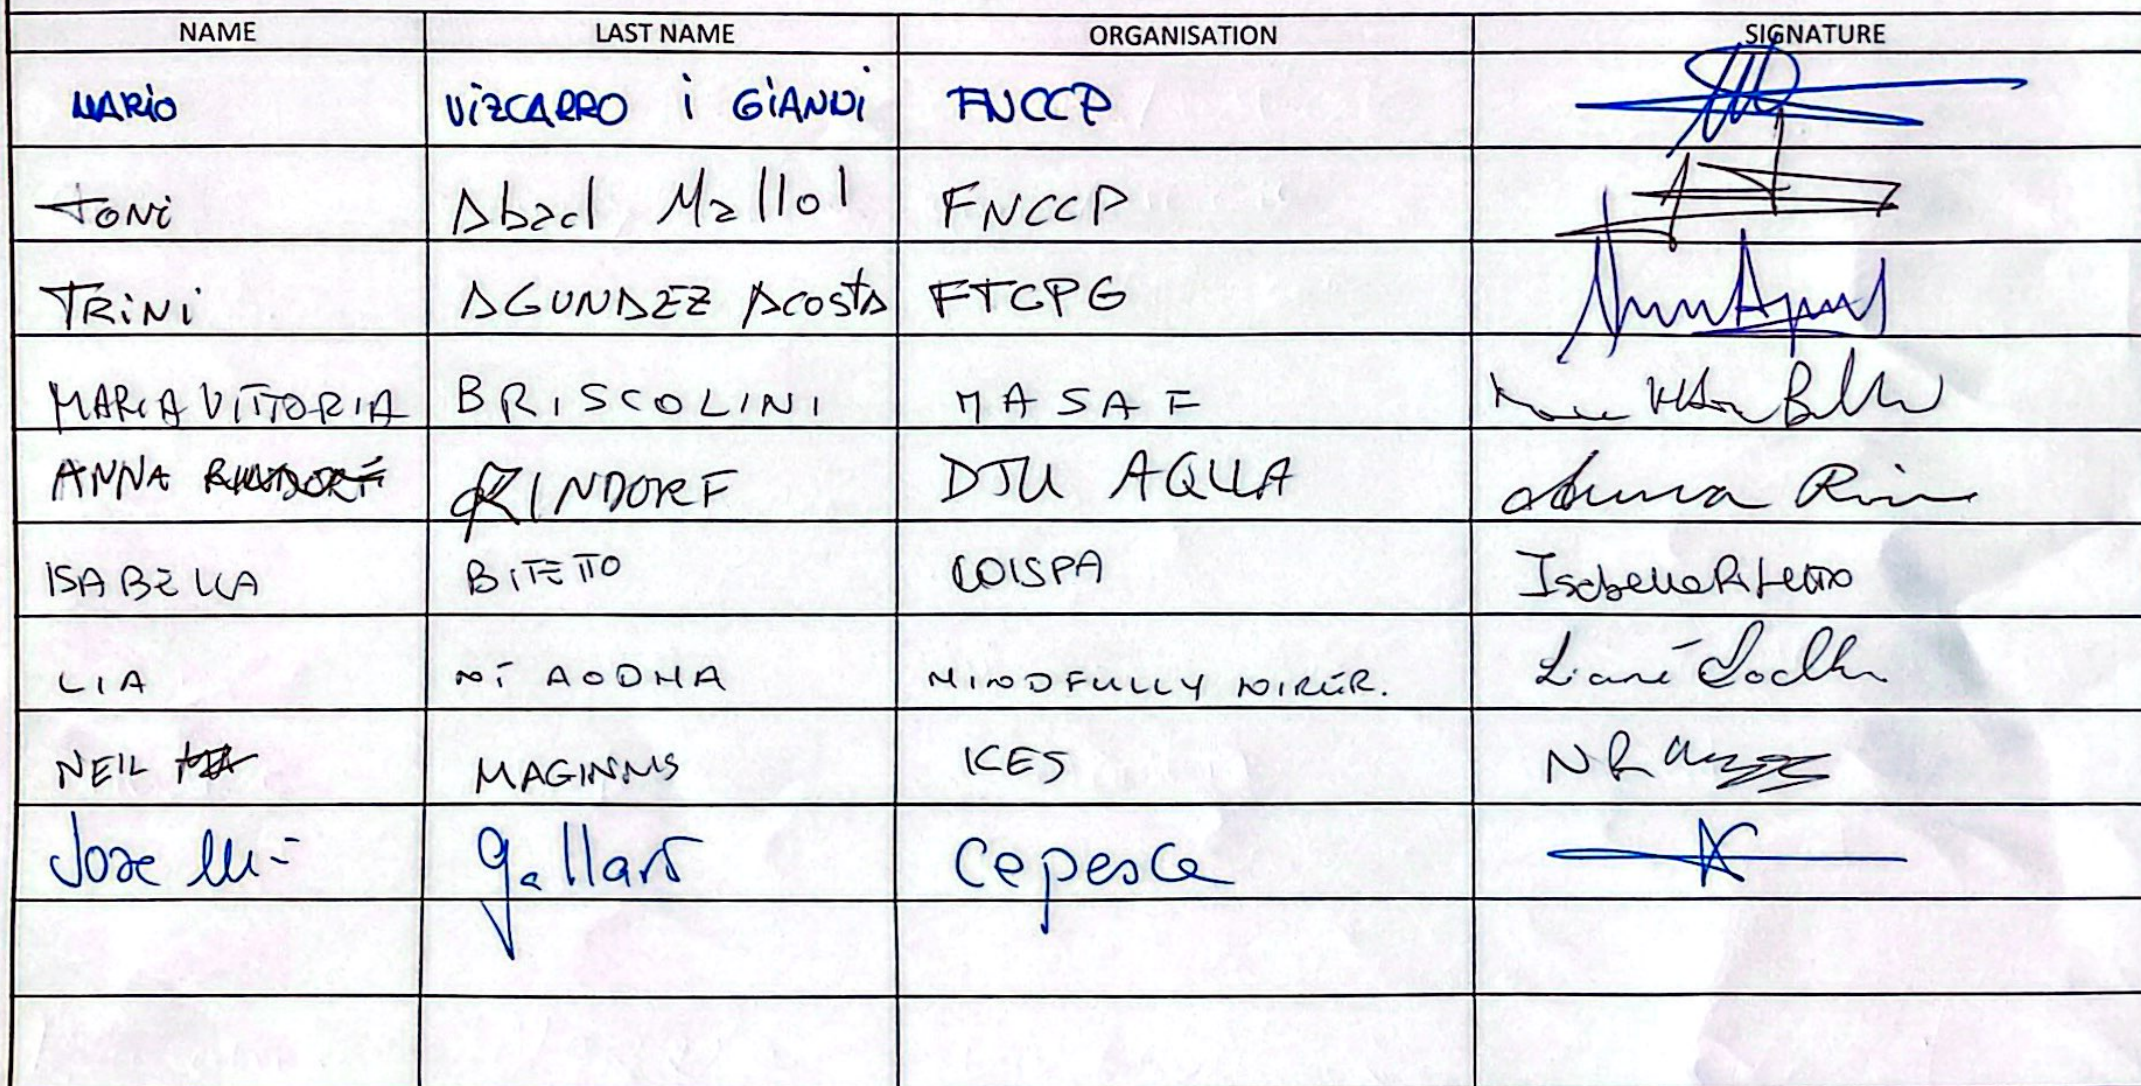 NAME LAST NAME ORGANISATION SIGNATURE
MARIO VIZCARRO i GIANNI FNCCP
TONI Abad Mallol FNCCP
TRINI AGUNDEZ Acosta FTCPG
MARIA VITTORIA BRISCOLINI MASAF
ANNA RINDORF DTU AQUA Anna Rin
ISABELLA BITETTO COISPA Isabella Bitetto
LIA NÍ AODHA MINDFULLY WIRED.
NEIL MAGINNIS ICES
Jose Mª Gallart Cepesca